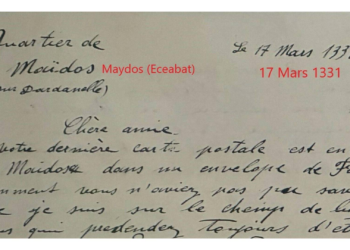 Quartier de
Maïdos Maydos (Eceabat)
Dardanelle)
Le 17 Mars 133
17 Mars 1331
Chère amie
votre dernière carte postale est en
Maidos dans un envelope de F
comment vous n'aviez pas pu sav
je suis sur le champ de
qui pretendez toujours d'êt